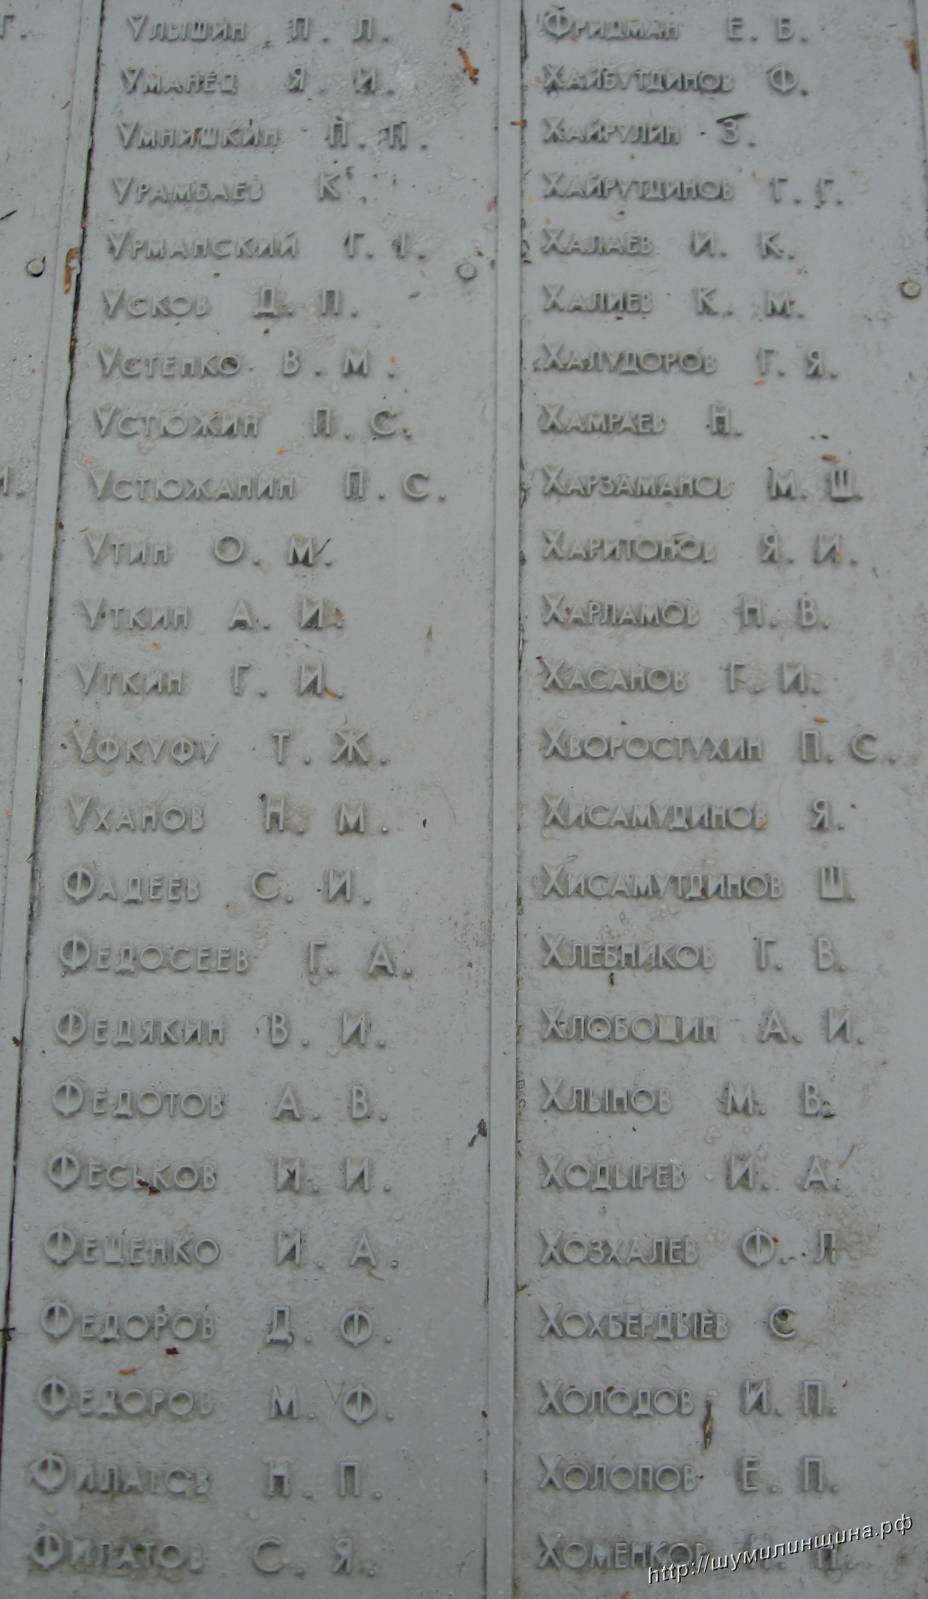 Г.
Улышин П. Л.
Уманец Я. И.
Умнишкин П. П.
Урамбаев К.
Урманский Г. Г.
Усков Д. П.
Устенко В. М.
Устюжин П. С.
Устюжанин П. С.
Утин О. М.
Уткин А. И.
Уткин Г. И.
Уфкуфу Т. Ж.
Уханов Н. М.
Фадеев С. И.
Федосеев Г. А.
Федякин В. И.
Федотов А. В.
Феськов И. И.
Фещенко И. А.
Федоров Д. Ф.
Федоров М. Ф.
Филатов Н. П.
Филатов С. Я.
Фридман Е. Б.
Хайбутдинов Ф.
Хайрулин З.
Хайрутдинов Г. Г.
Халаев И. К.
Халиев К. М.
Халудоров Г. Я.
Хамраев Н.
Харзаманов М. Ш.
Харитонов Я. И.
Харламов Н. В.
Хасанов Г. И.
Хворостухин П. С.
Хисамудинов Я.
Хисамутдинов Ш.
Хлебников Г. В.
Хлобощин А. И.
Хлынов М. В.
Ходырев И. А.
Хозхалев Ф. Л
Хохбердыев С
Холодов И. П.
Холопов Е. П.
Хоменков
http://шумилинщина.рф